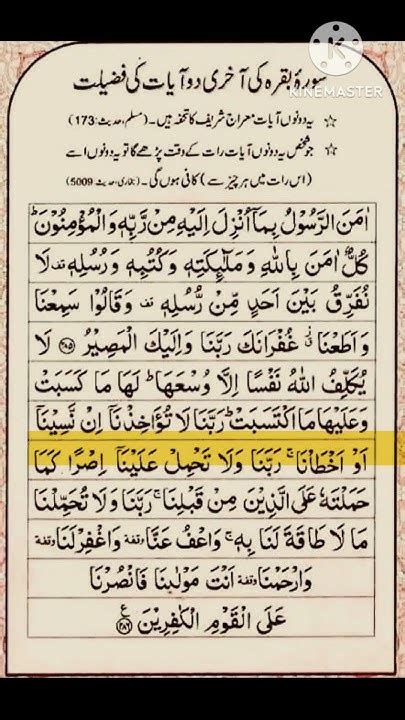 سورۂ بقرہ کی آخری دو آیات کی فضیلت
KINEMASTER
☆ یہ دونوں آیات معراج شریف کا تحفہ ہیں۔ (مسلم، حدیث: 173)
☆ جو شخص یہ دونوں آیات رات کے وقت پڑھے گا تو یہ دونوں اسے
(اس رات میں ہر چیز سے) کافی ہوں گی۔ (بخاری، حدیث: 5009)
اٰمَنَ الرَّسُوْلُ بِمَاۤ اُنْزِلَ اِلَیْهِ مِنْ رَّبِّهٖ وَالْمُؤْمِنُوْنَ ؕ
كُلٌّ اٰمَنَ بِاللّٰهِ وَمَلٰٓئِكَتِهٖ وَكُتُبِهٖ وَرُسُلِهٖ قف لَا
نُفَرِّقُ بَیْنَ اَحَدٍ مِّنْ رُّسُلِهٖ قف وَقَالُوْا سَمِعْنَا
وَاَطَعْنَا ق غُفْرَانَكَ رَبَّنَا وَاِلَیْكَ الْمَصِیْرُ ﴿۲۸۵﴾ لَا
یُكَلِّفُ اللّٰهُ نَفْسًا اِلَّا وُسْعَهَا ؕ لَهَا مَا كَسَبَتْ
وَعَلَیْهَا مَا اكْتَسَبَتْ ؕ رَبَّنَا لَا تُؤَاخِذْنَاۤ اِنْ نَّسِیْنَاۤ
اَوْ اَخْطَاْنَا ۚ رَبَّنَا وَلَا تَحْمِلْ عَلَیْنَاۤ اِصْرًا كَمَا
حَمَلْتَهٗ عَلَى الَّذِیْنَ مِنْ قَبْلِنَا ۚ رَبَّنَا وَلَا تُحَمِّلْنَا
مَا لَا طَاقَةَ لَنَا بِهٖ ۚ وَاعْفُ عَنَّا وقفة وَاغْفِرْ لَنَا وقفة
وَارْحَمْنَا وقفة اَنْتَ مَوْلٰىنَا فَانْصُرْنَا
عَلَى الْقَوْمِ الْكٰفِرِیْنَ ﴿۲۸۶﴾ ع